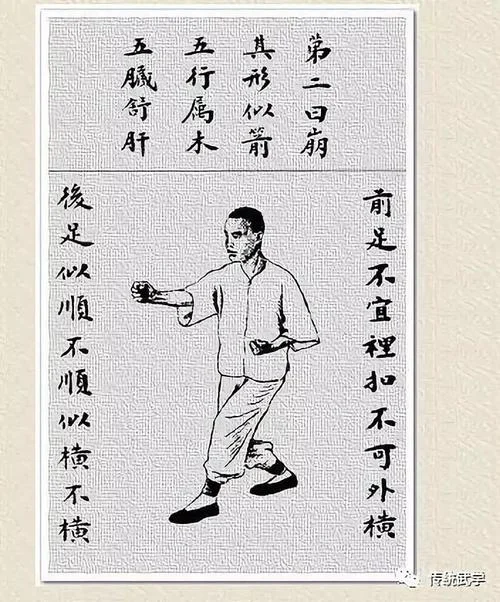 第二曰崩
其形似箭
五行属木
五臟舒肝
前足不宜裡扣不可外横
後足似順不順似横不横
传统武学